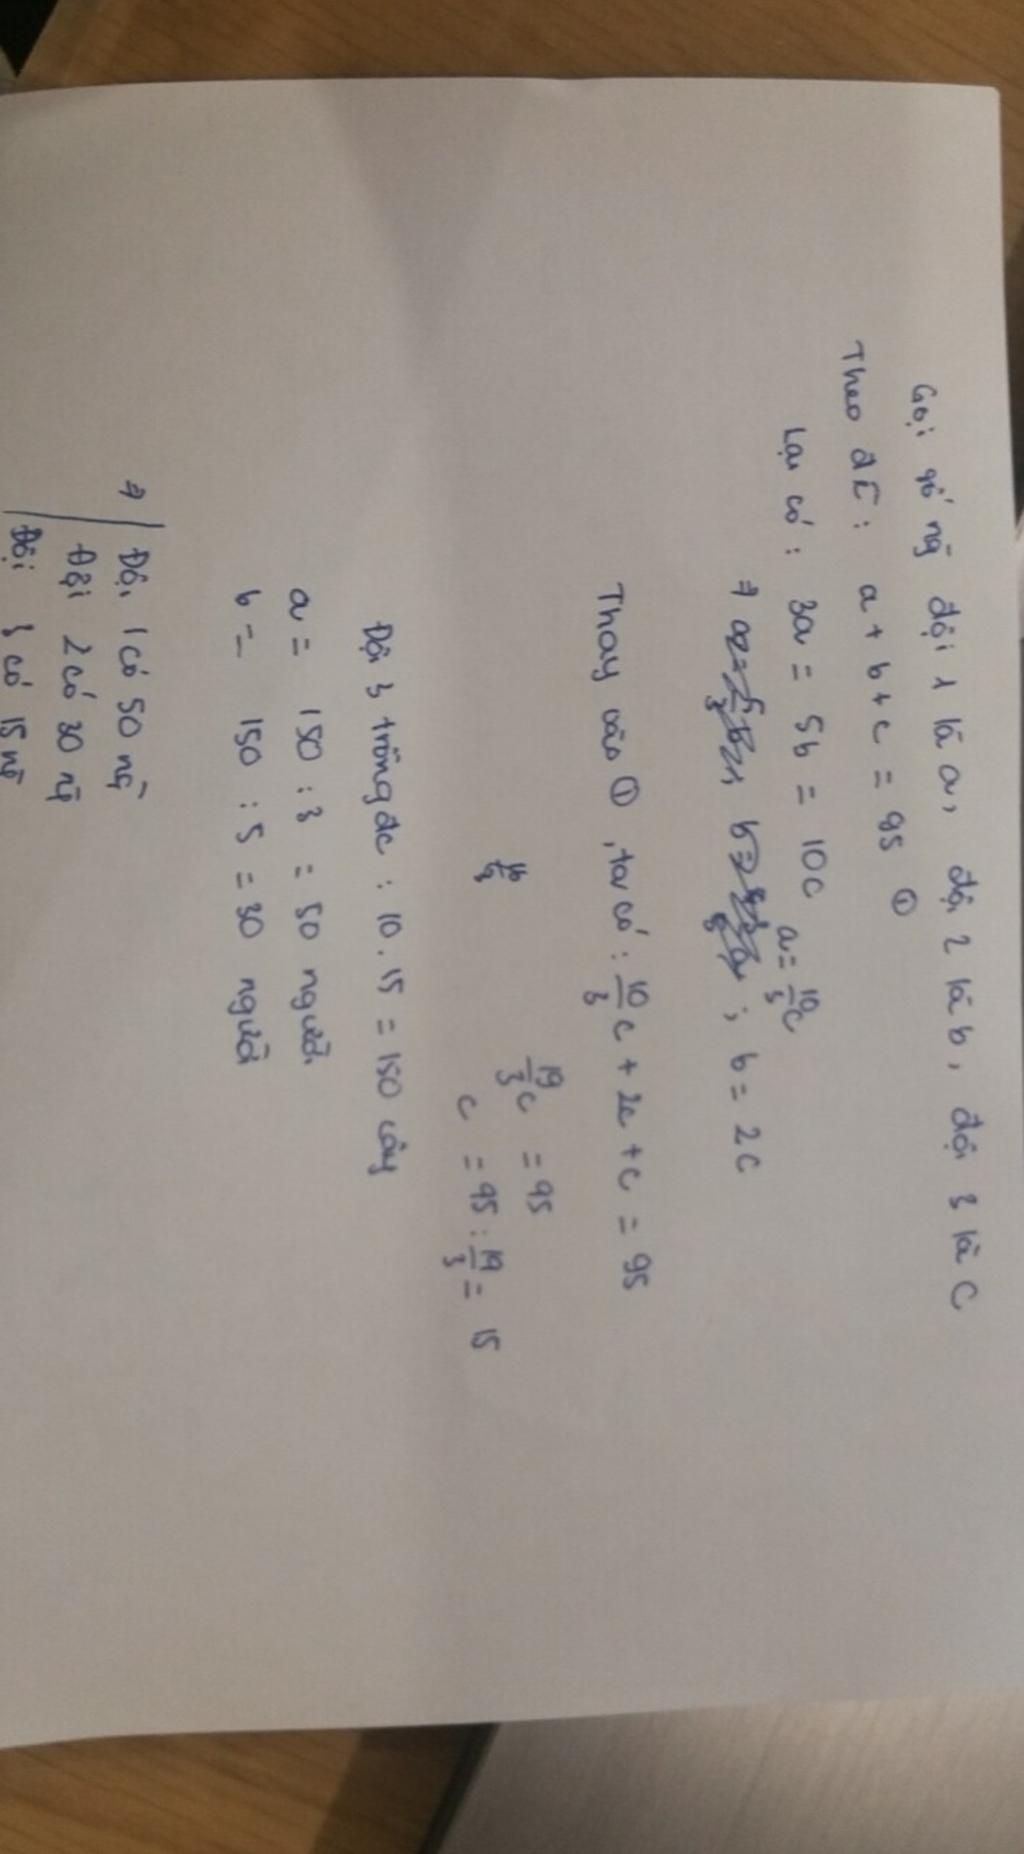 Gọi số ng đội 1 là a, đội 2 là b, đội 3 là C
Theo đề: a + b + c = 95 ①
Lại có: 3a = 5b = 10c
a = 10/3 c
⇒ ; b = 2C
Thay vào ①, ta có: 10/3 c + 2c + c = 95
19/3 c = 95
c = 95 : 19/3 = 15
Đội 3 trồng đc : 10 . 15 = 150 cây
a = 150 : 3 = 50 người
b = 150 : 5 = 30 người
⇒ Đội 1 có 50 ng
Đội 2 có 30 ng
Đội 3 có 15 ng